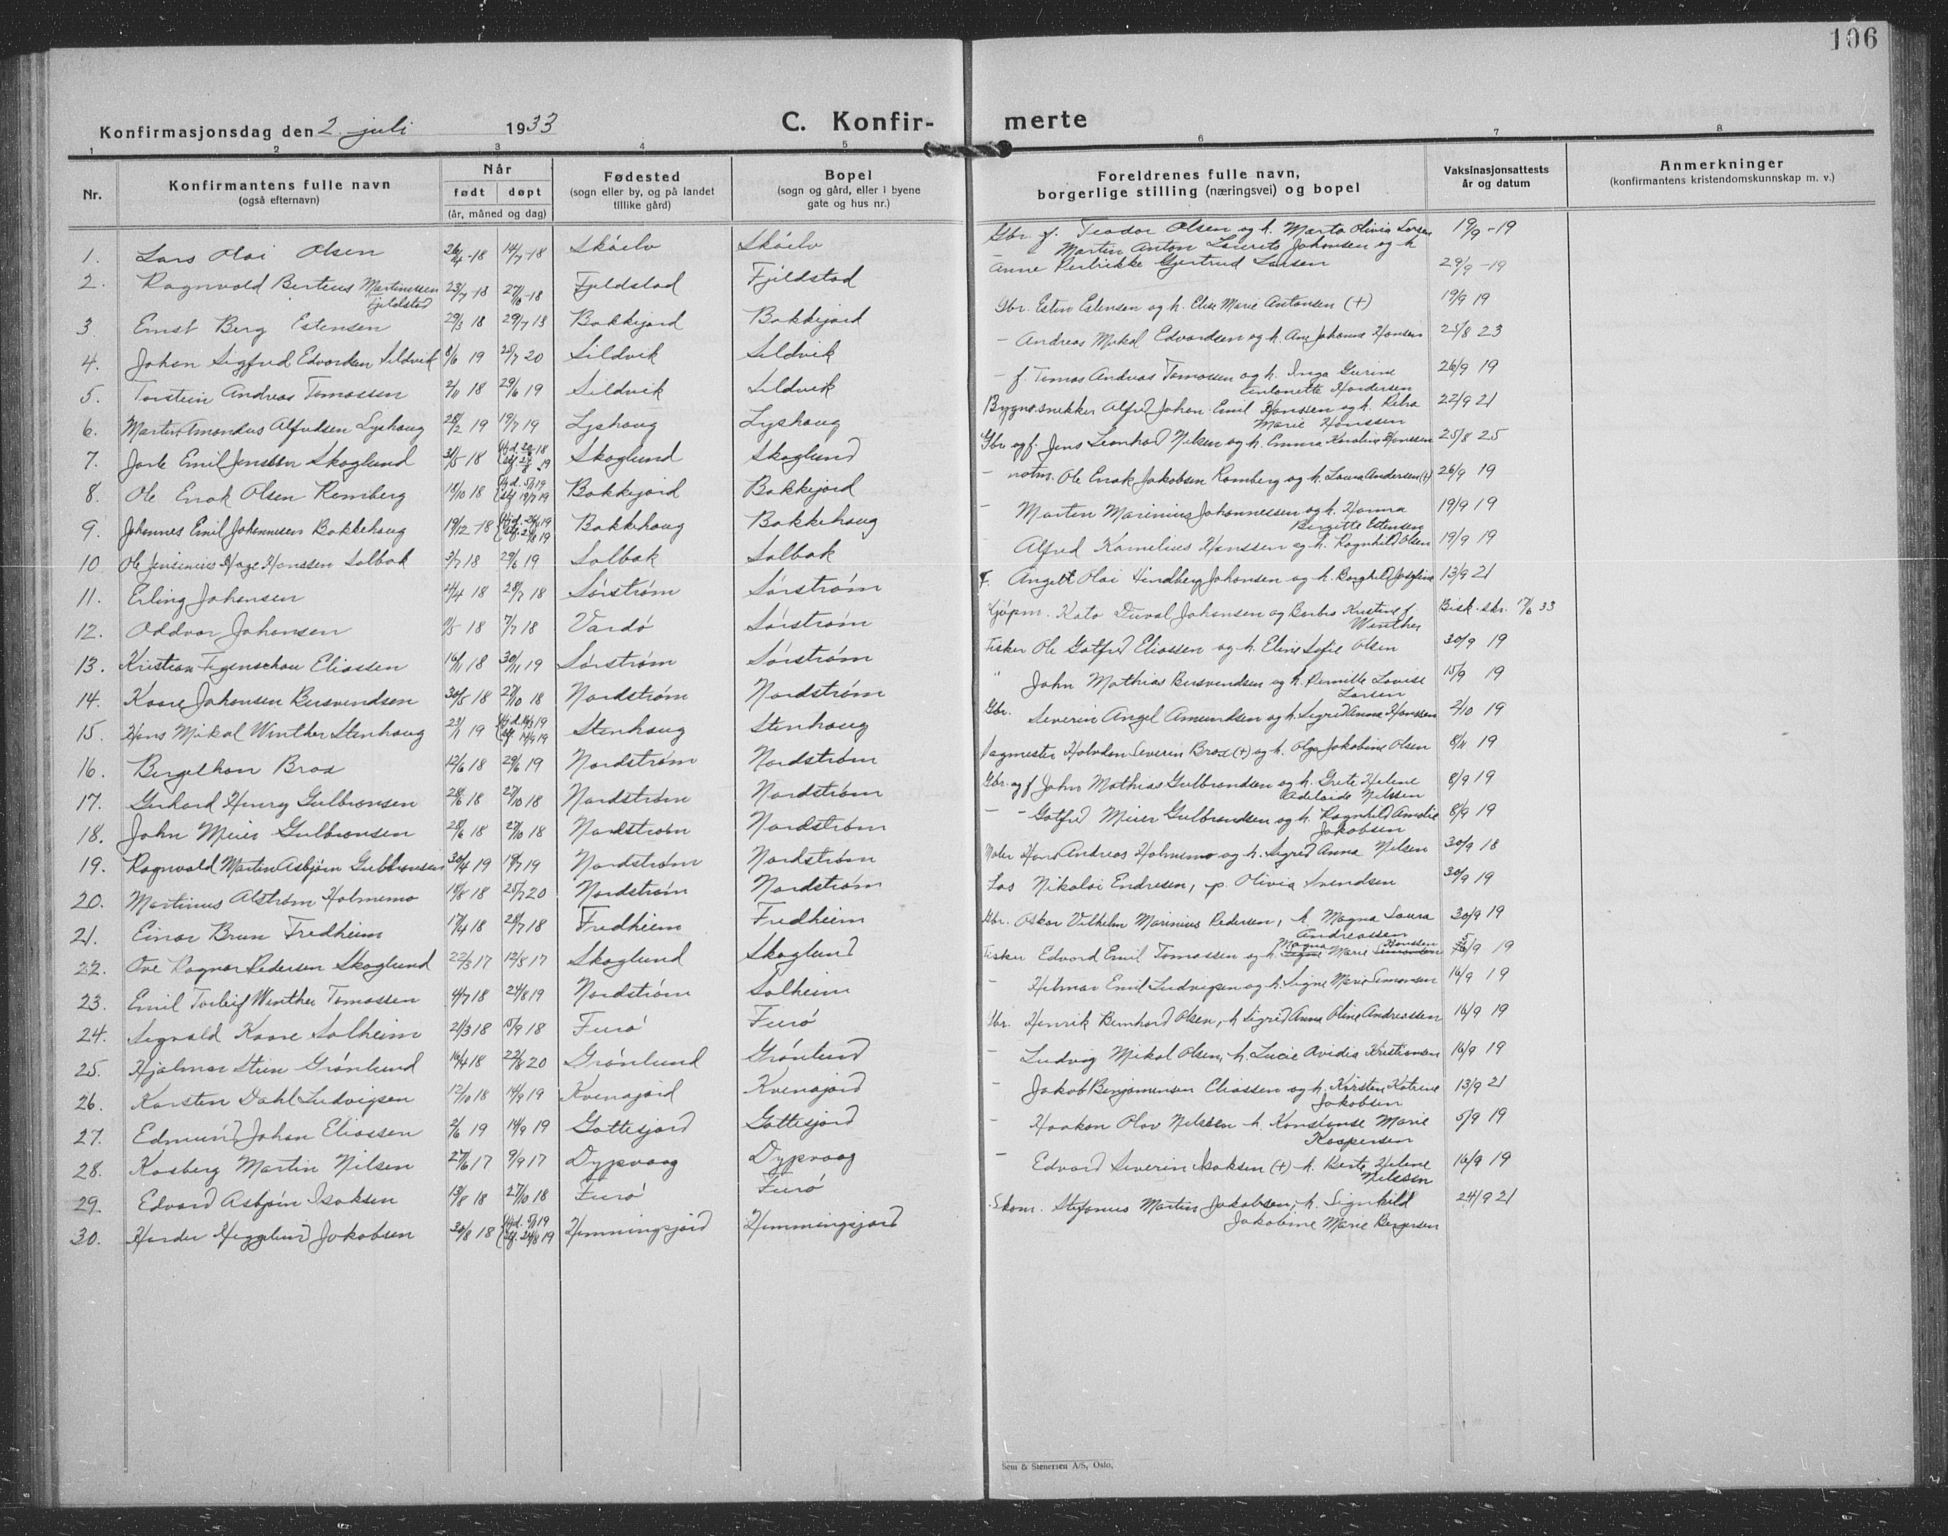 106
Konfirmasjonsdag den 2. juli 1933
C. Konfir- merte
1 2 3 4 5 6 7 8
Nr.
Konfirmantens fulle navn
(også efternavn)
Når
født døpt
(år, måned og dag)
Fødested
(sogn eller by, og på landet
tillike gård)
Bopel
(sogn og gård, eller i byene
gate og hus nr.)
Foreldrenes fulle navn,
borgerlige stilling (næringsvei) og bopel
Vaksinasjonsattests
år og datum
Anmerkninger
(konfirmantens kristendomskunnskap m. v.)
1. Lars Olai Olsen 26/4-18 14/7-18 Skáelv Skáelv Gbr. f. Teodor Olsen og h. Marta Olivia Larsen 19/9-19
2. Ragnvald Berteus Martinussen Fjeldstad 23/7-18 27/10-18 Fjeldstad Fjeldstad Martin Anton Laurits Johansen og h
Anne Perlrikke Gjertrud Larsen 29/9-19
3 Ernst Berg Estensen 29/3 18 29/7 18 Bakkejord Bakkejord Gbr. Esten Estensen og h. Elise Marie Antonsen (+) 19/9 19
4. Johan Sigfred Edvardsen Sildvik 8/6 19 25/7 20 Sildvik Sildvik - Andreas Mikal Edvardsen og h. Ane Johanna Hansen 25/8 23
5. Torstein Andreas Tomassen 2/11 18 29/6 19 Sildvik Sildvik - f. Tomas Andreas Tomassen og h. Inga Gurine
Antonette Hondersen 26/9 19
6. Martin Amandus Alfredsen Lyshaug 28/2 19 19/7 19 Lyshaug Lyshaug Bygn.snekker Alfred Johan Emil Hanssen og h. Petra
Marie Hanssen 22/9 21
7. Jarle Emil Jenssen Skoglund 31/5 18 Skoglund Skoglund Gbr og f. Jens Leonhard Nilsen og h. Emma Karoline Hanssen 25/8 25
8. Ole Enok Olsen Remberg 18/10 18 (hj.d. 5/1 19 (stf. 19/7 19 Bakkejord Bakkejord - notm. Ole Enok Jakobsen Ramberg og h. Laura Andersen (+) 26/9 19
9. Johannes Emil Johannesen Bakkehaug 19/12-18 Bakkehaug Bakkehaug - Martin Marinius Johannessen og h. Hanna
Bergitte Estensen 19/9 19
10 Ole Jensinius Hage Hanssen Solbak 3/7 18 29/6 19 Solbak Solbak - Alfred Kornelius Hanssen og h. Ragnhild Olsen 19/9 19
11. Erling Johansen 24/4 18 28/7 18 Sørstrøm Sørstrøm F. Angell Olai Lindberg Johansen og h. Borghild Josefine 13/9 21
12. Oddvar Johansen 9/5 18 7/7 18 Vardö Sørstrøm Kjöpm. Kato Duval Johansen og Barbro Kristine f.
Winther Bisk. skr. 17/6 33
13. Kristian Figenschou Eliassen 16/11 18 30/11 19 Sørstrøm Sørstrøm Fisker Ole Gotfred Eliassen og h. Eline Sofie Olsen 30/9 19
14. Kaare Johansen Bersvendsen 30/5 18 27/10 18 Nordstrøm Nordstrøm " John Mathias Bersvendsen og h. Pernille Lovise
Larsen 15/9 19
15. Hans Mikal Winther Stenhaug 23/1 19 (hj.d. 16/3 19 (stf. 14/9 19 Stenhaug Stenhaug Gbr. Severin Angel Amundsen og h. Sigrid Anna Hanssen 2/10 19
16. Bergelhon Brox 12/6 18 29/6 19 Nordstrøm Nordstrøm Jagmester Halvdan Severin Brox (+) og h. Olga Jakobine Olsen 8/11 19
17. Gerhard Henry Gulbransen 28/6 18 27/10 18 Nordstrøm Nordstrøm Gbr. og f John Mathias Gulbrandsen og h. Grete Helene
Adelaide Nilssen 8/9 19
18. John Meier Gulbransen 28/6 18 27/10 18 Nordstrøm Nordstrøm - Gotfred Meier Gulbrandsen og h. Ragnhild Amalie
Jakobsen 8/9 19
19. Ragnvald Martin Asbjørn Gulbransen 30/4 19 19/7 19 Nordstrøm Nordstrøm Maler Hans Andreas Holmemo og h. Sigrid Anna Nilsen 30/9 18
20. Martinus Alstrøm Holmemo 18/8 18 25/7 20 Nordstrøm Nordstrøm Los Nikolai Endresen, p. Olivia Svendsen 30/9 19
21. Einar Brun Fredheim 17/4 18 28/7 18 Fredheim Fredheim Gbr. Oskar Vilhelm Marinius Pedersen, h Magna Laura
Andreassen 30/9 19
22. Ove Ragnar Pedersen Skoglund 22/3 17 12/8 17 Skoglund Skoglund Fisker Edvard Emil Tomassen og h. Magna Marie Hanssen 19
23. Emil Torleif Winther Tomassen 4/7 18 24/8 19 Nordstrøm Solheim - Hilmar Emil Ludvigsen og h. Signe Marie Simonsen 16/9 19
24. Sigvald Kaare Solheim 21/3 18 15/9 18 Furö Furö Gbr. Henrik Bernhard Olsen, h Sigrid Anna Oline Andreassen 16/9 19
25. Hjalmar Stein Grönlund 16/4 18 22/8 20 Grönlund Grönlund - Ludvig Mikal Olsen, h. Lucie Avidia Kristiansen 16/9 19
26. Karsten Dahl Ludvigsen 12/10 18 14/9 19 Kvenajord Kvenajord - Jakob Benjaminsen Eliassen og h. Kirsten Katrine
Jakobsen 13/9 21
27. Edmund Johan Eliassen 2/6 19 14/9 19 Gottesjord Gottesjord - Haakon Olav Nilssen h. Konstanse Marie
Kaspersen 5/9 19
28. Kasberg Martin Nilsen 27/6 17 9/9 17 Dypvaag Dypvaag - Edvard Severin Isaksen (+) h. Berte Helene
Nilssen 16/9 19
29. Edvard Asbjørn Isaksen 13/8 18 27/10 18 Furö Furö Skom. Stefanus Martin Jakobsen, h. Signhild
Jakobine Marie Bergersen 24/9 21
30. Jakobsen 30/8 18 Hemmingsjord Hemmingsjord
Sem & Stenersen A/S, Oslo.